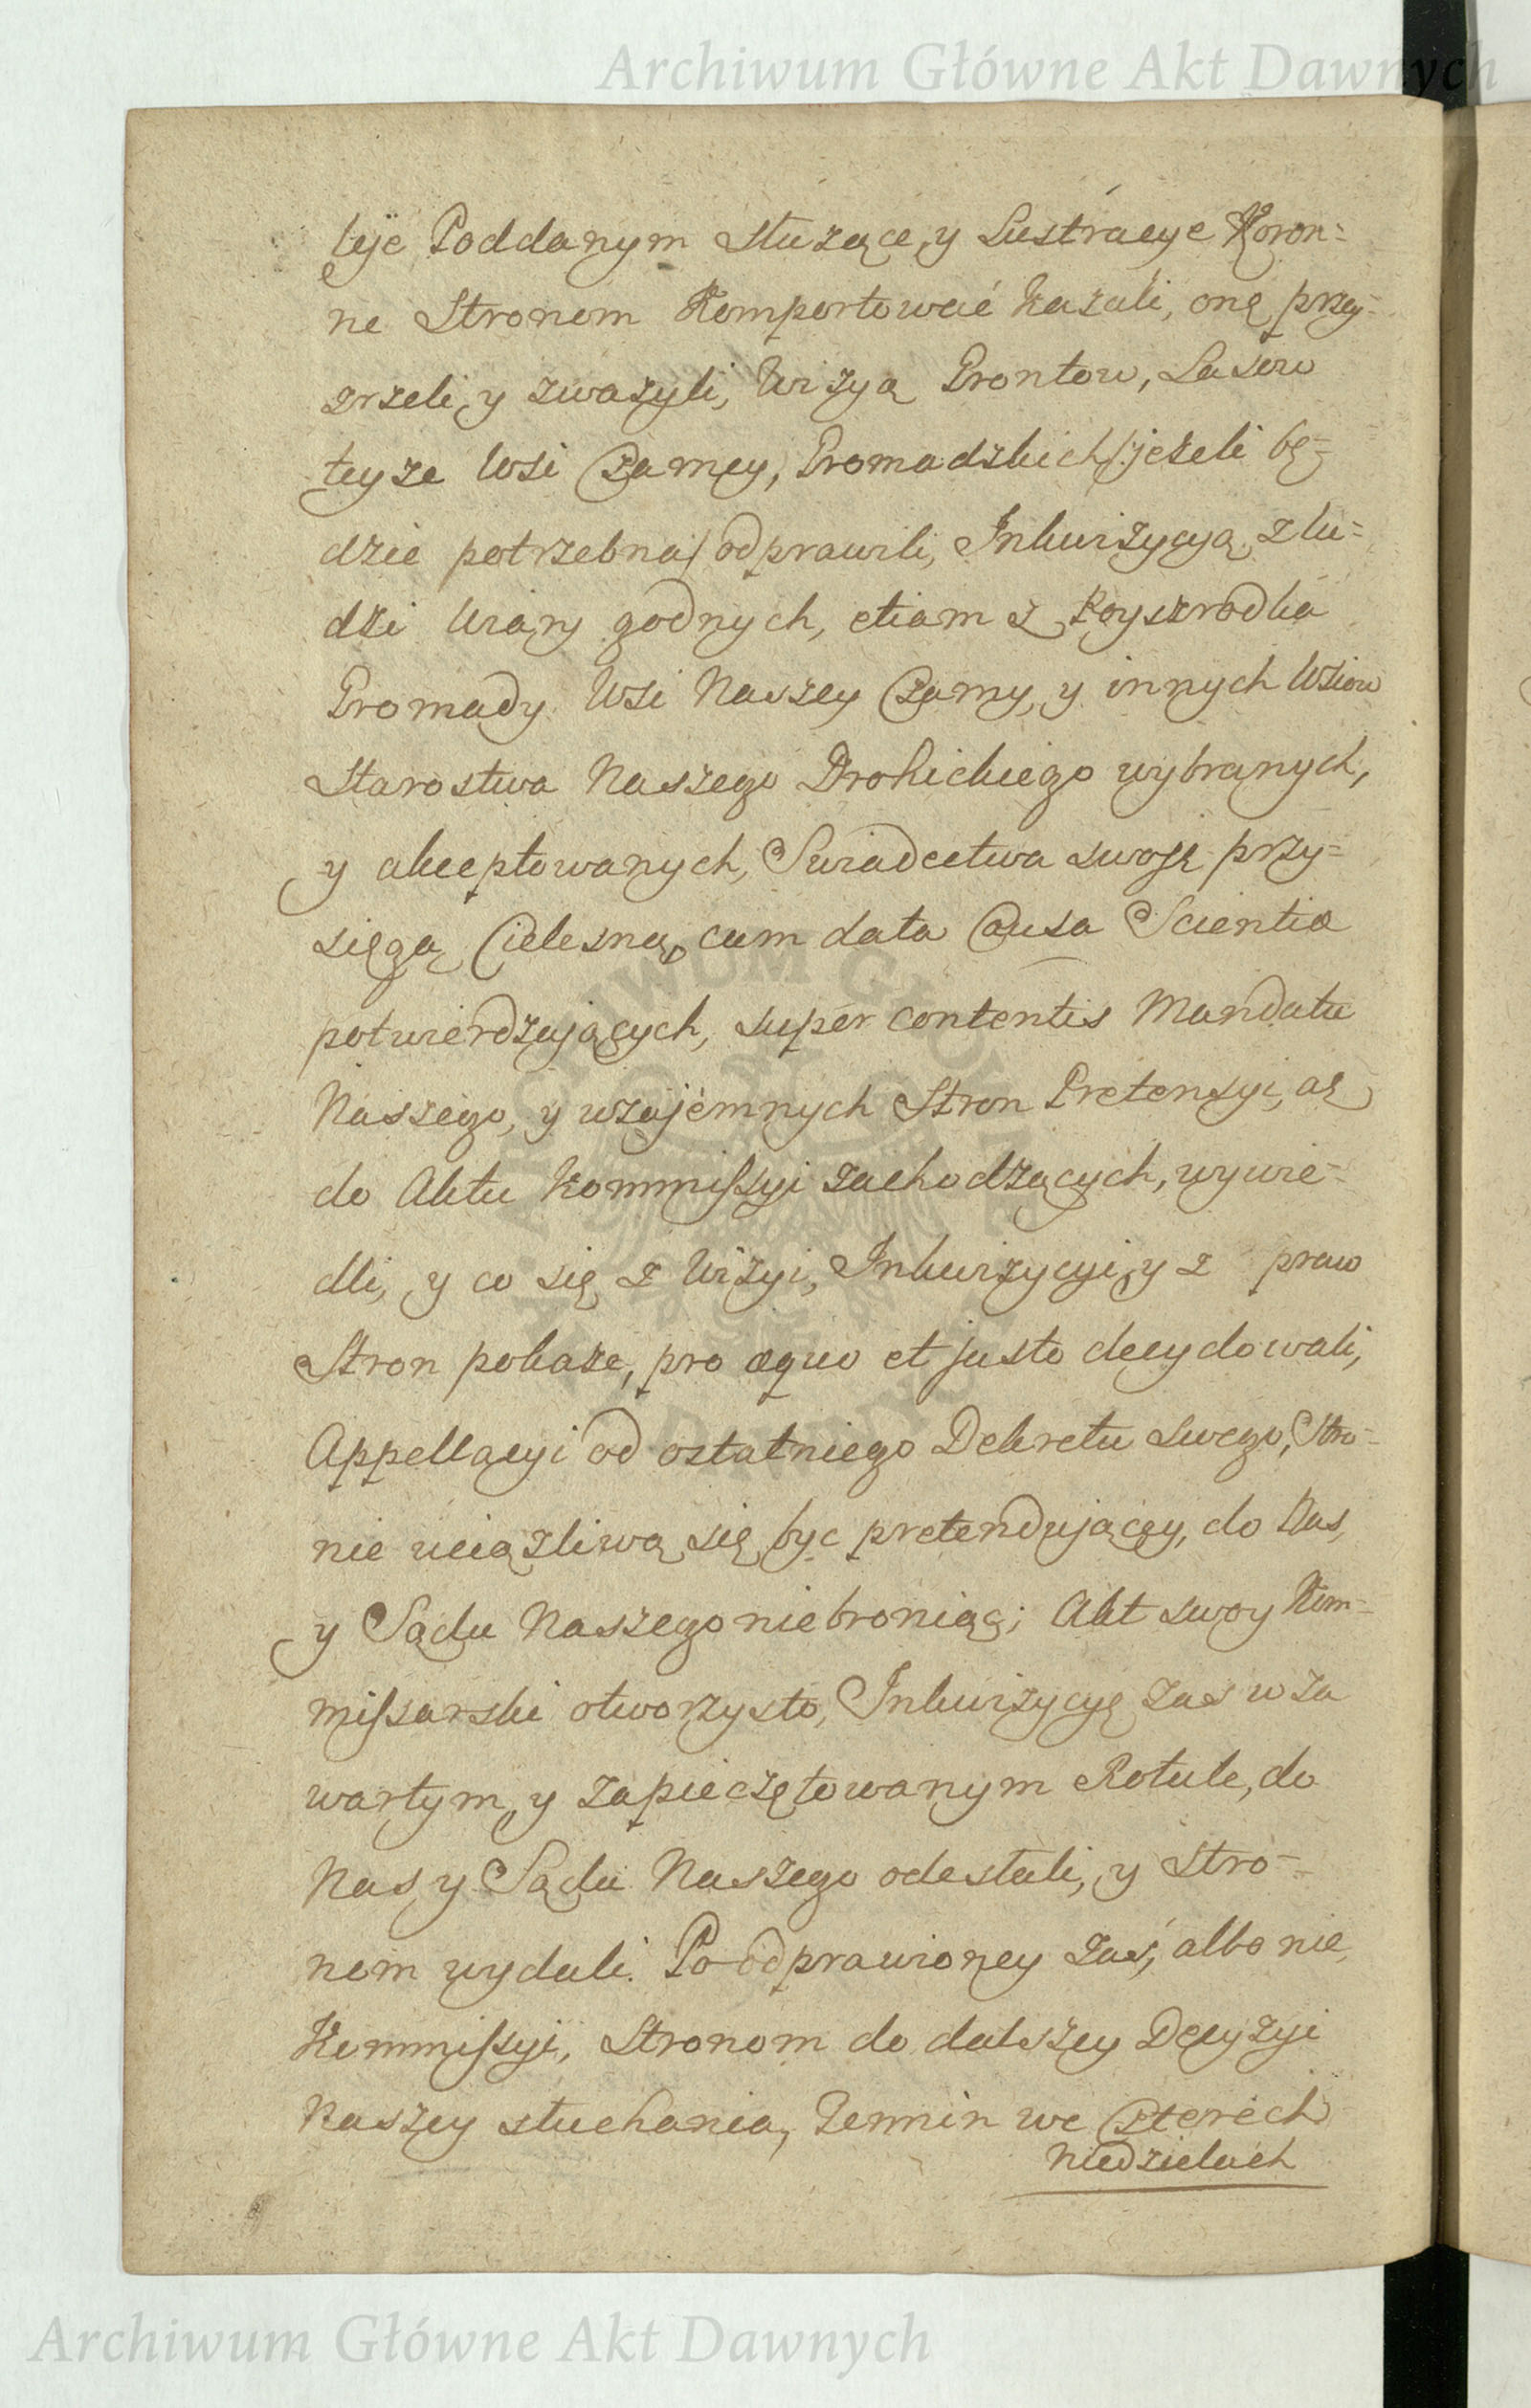 Archiwum Główne Akt Dawnych
leje Poddanym służące, y Lustracye Koron=
ne Stronom Komportować kazali, onę przey=
zrzeli, y zważyli, Wizyą Grontow, Lasow
teyże Wsi Czarney, Gromadzkich /:jeżeli bę=
dzie potrzebna/ odprawili, Inkwizycyą, z lu=
dzi wiary godnych, etiam z poyszrodka
Gromady Wsi Naszey Czarny, y innych Wsiow
Starostwa Naszego Drohickiego wybranych,
y akceptowanych, Swiadectwa swoję przy=
sięgą Cielesną, cum data Causa Scientiæ
potwierdzających, super contentis Mandatu
Naszego, y wzajemnych Stron Pretensyi, aż
do Aktu Kommissyi zachodzących, wywie=
dli, y co się z Wizyi, Inkwizycyi, y z praw
Stron pokaże, pro æquo et justo decydowali,
Appellacyi od ostatniego Dekretu swego, Stro=
nie uciążliwą się byc pretendującey, do Nas,
y Sądu Naszego niebroniąc; Akt swoy Kom=
missarski otworzysto, Inkwizycyę zaś w za
wartym, y zapieczętowanym Rotule, do
Nas y Sądu Naszego odesłali, y stro=
nom wydali. Po odprawioney zaś, albo nie,
Kommissyi, Stronom do dalszey Decyzyi
Naszey słuchania, Termin we Czterech
niedzielach
Archiwum Główne Akt Dawnych